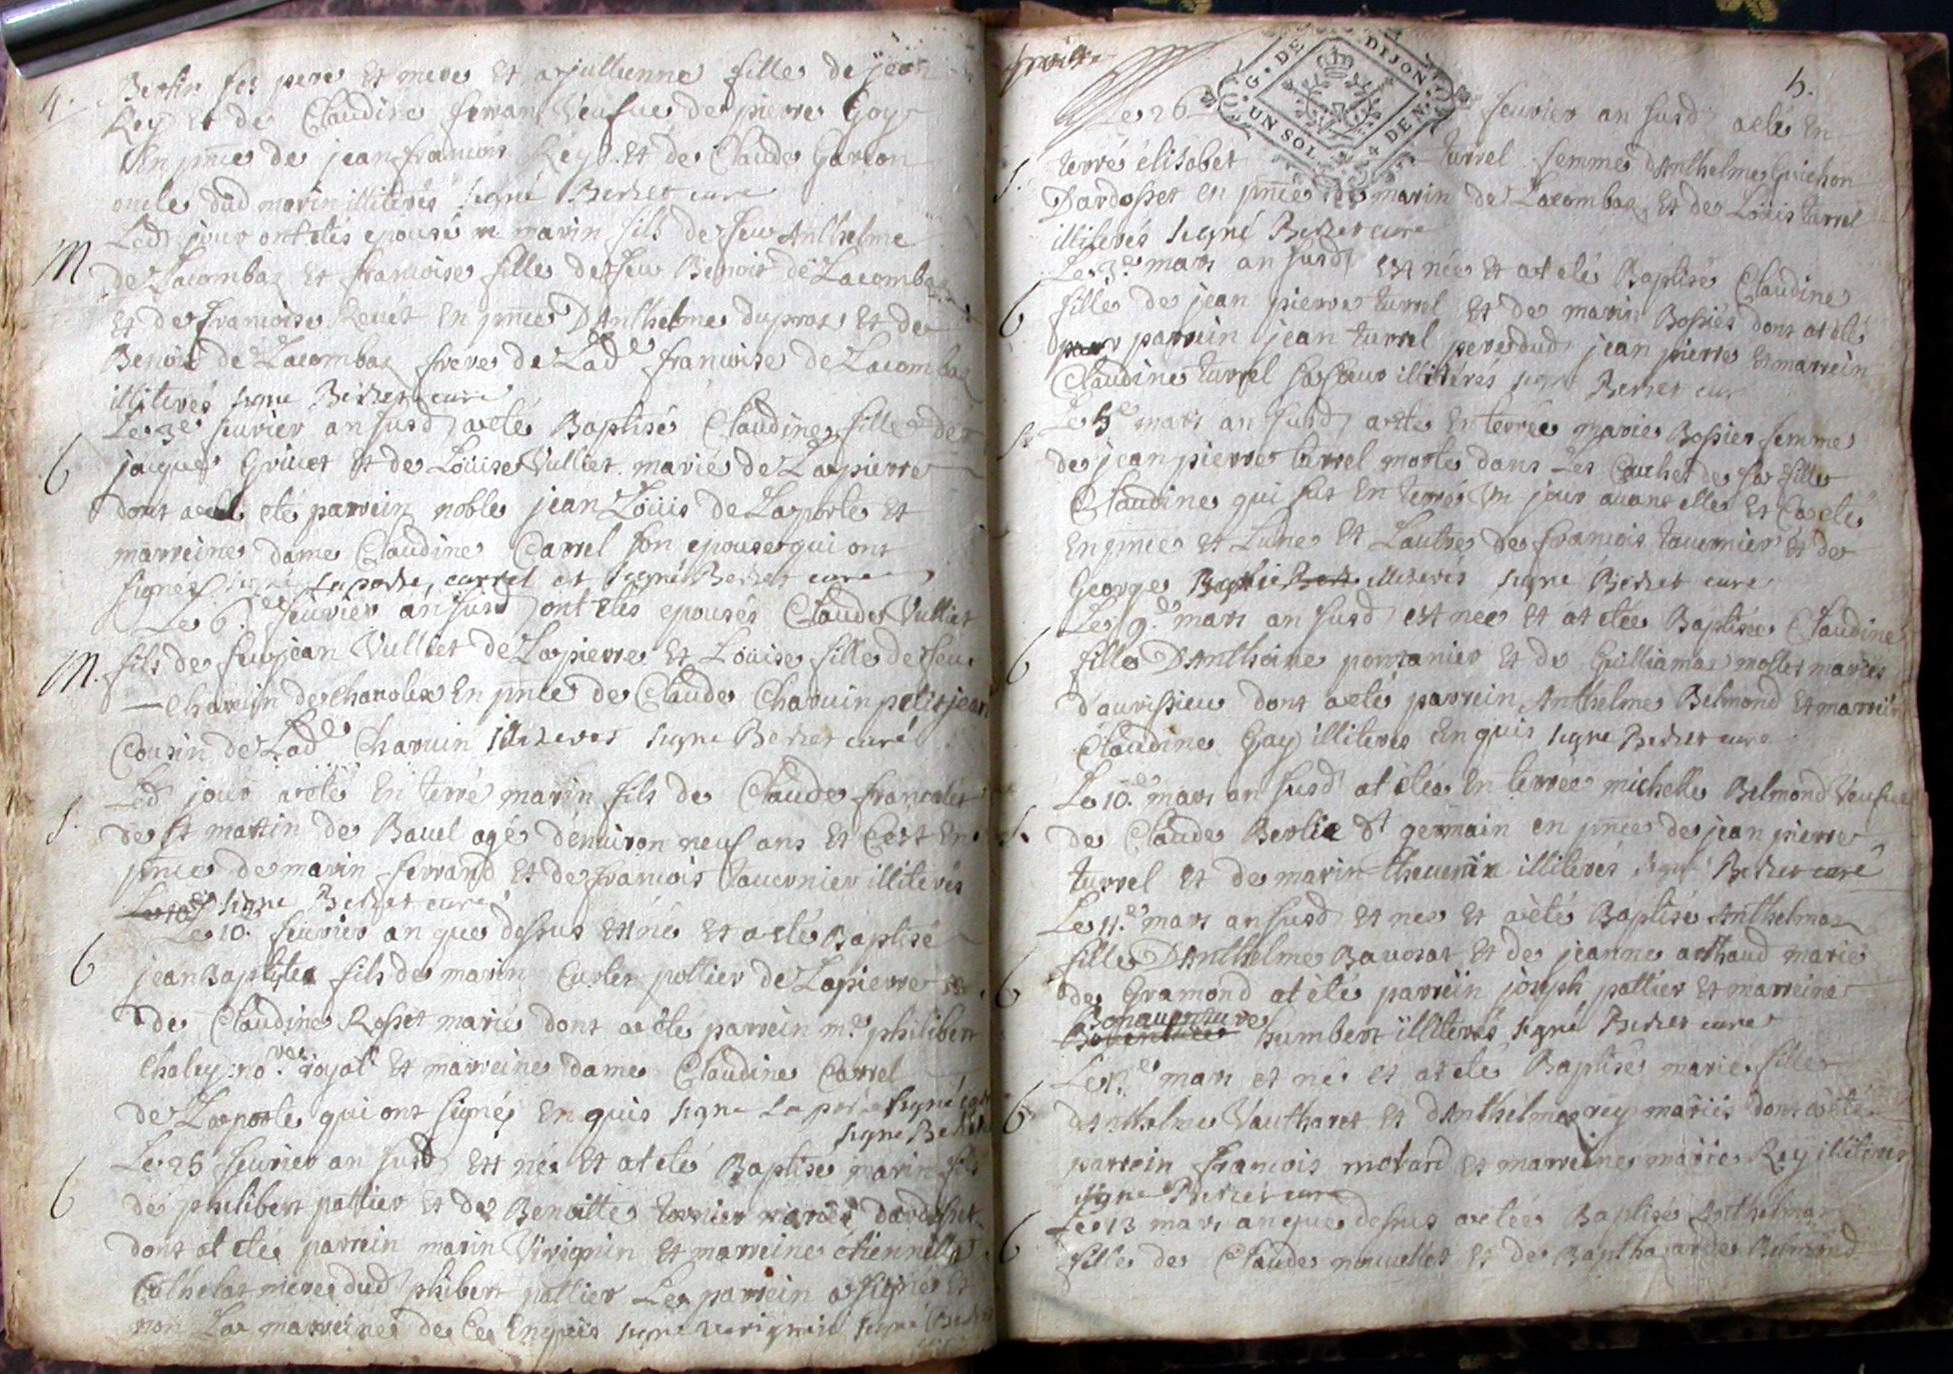 4.
Bertin ses pere et mere et a jullienne fille de jean
Rey et de Claudine ferran Veufue de pierre Goy
En pnce de jean francois Rey et de Claude Garcon
oncle dud marin illiterés signé Berlier curé
Led jour ont etés epousé marin fils de feu Anthelme
M
de Lacombaz et francoise fille de feu Benoit de Lacombaz
et de francoise Reuet En pnce D'Anthelme duprat et de
Benoit de Lacombaz frere de Lade francoise de Lacombaz
illiterés signe curé
Le 3e feurier an susd a eté Baptisé Claudine fille de
6
jacque Griuet et de Loüise Vulliet marié de Lapierre
dont a eté parrein noble jean Loüis de Laporte et
marreine dame Claudine Carrel son epouse qui ont
signes signé Laporte, carrel et signé curé
Le 6e feurier an susd ont etés epousés Claude Vulliet
M.
fils de feu jean Vulliet de Lapierre et Loüise fille de feu
Charuin de En pnce de Claude Charuin petit jean
Cousin de Lade Charuin illiteres signe curé
Led jour a eté Enterré marin fils de Claude francolet
S.
de st martin de Bauel agé denuiron neuf ans et C'est En
pnce de marin ferrand et de francois tauernier illiterés
signe curé
Le 10. feurier an que dessus est né et a eté Baptisé
6
jean Baptiste fils de marin Curtet pottier de Lapierre et
de Claudine Rosset marié dont a eté parrein me philibert
Chaley no. royal et marreine dame Claudine Carrel
de Laporte qui ont signés En quis signe Laporte signé
signe
Le 25 feurier an susd est né et at eté Baptisé marin fils
6
de philibert pottier et de Benoitte tornier mariés dardosset
dont at eté parrein marin Virignin et marreine etiennette
Cathelat mere dud phibert pottier Le parrein a signé et
non La marreine de Ce Enquis signe virignin signé
G. DE DIJON
UN SOL 4 DEN.
5.
Le 26 feurier an susd a eté En
S.
terré élisabet turrel femme d'Anthelme Guichon
Dardosset en pnce de marin de Lacombaz et de Loüis turrel
illiterés signé curé
Le 3e mars an susd est née et at eté Baptisé Claudine
6
fille de jean pierre turrel et de marie Bossier dont at eté
parrein jean turrel pere dud jean pierre et marrein
Claudine turrel sa soeur illiterés signe cur
Le 5e mars an susd a eté enterrée marie Bossier femme
S.
de jean pierre turrel morte dans Les Couches de sa fille
Claudine qui fut En terré Un jour auant elle et Ca eté
En pnce et Lune et Lautre de francois tauernier et de
George illiterés signe curé
Le 9e mars an susd est née et at etée Baptisée Claudine
6
fille D'Anthoine pontanier et de Guilliama mollet mariés
d'auissieu dont a eté parrein Anthelme Belmond et marrein
Claudine Gay illiteres enquis signe curé
Le 10e mars an susd at etée En terrée michelle Belmond Veufue
S.
de Claude Berlie dt germain en pnce de jean pierre
turrel et de marin theuenin illiterés signé curé
Le 11e mars an susd et nee et a eté Baptisé Anthelma
fille D'Anthelme Bauosat et de jeanne arthaud marié
6
de Gramond at eté parrein joseph pottier et marreine
Bonauenture
humbert illiterés signé curé
Le mars et né et at eté Baptisé marie fille
6
d'Anthelme Vautharet et d'Anthelma rey mariés dont a eté
parrein francois motard et marreine marie Rey illiterés
signe curé
Le 13 mars an que dessus a eteé Baptisé Anthelma
6
fille de Claude nouuellet et de Bapthazarde Belmond